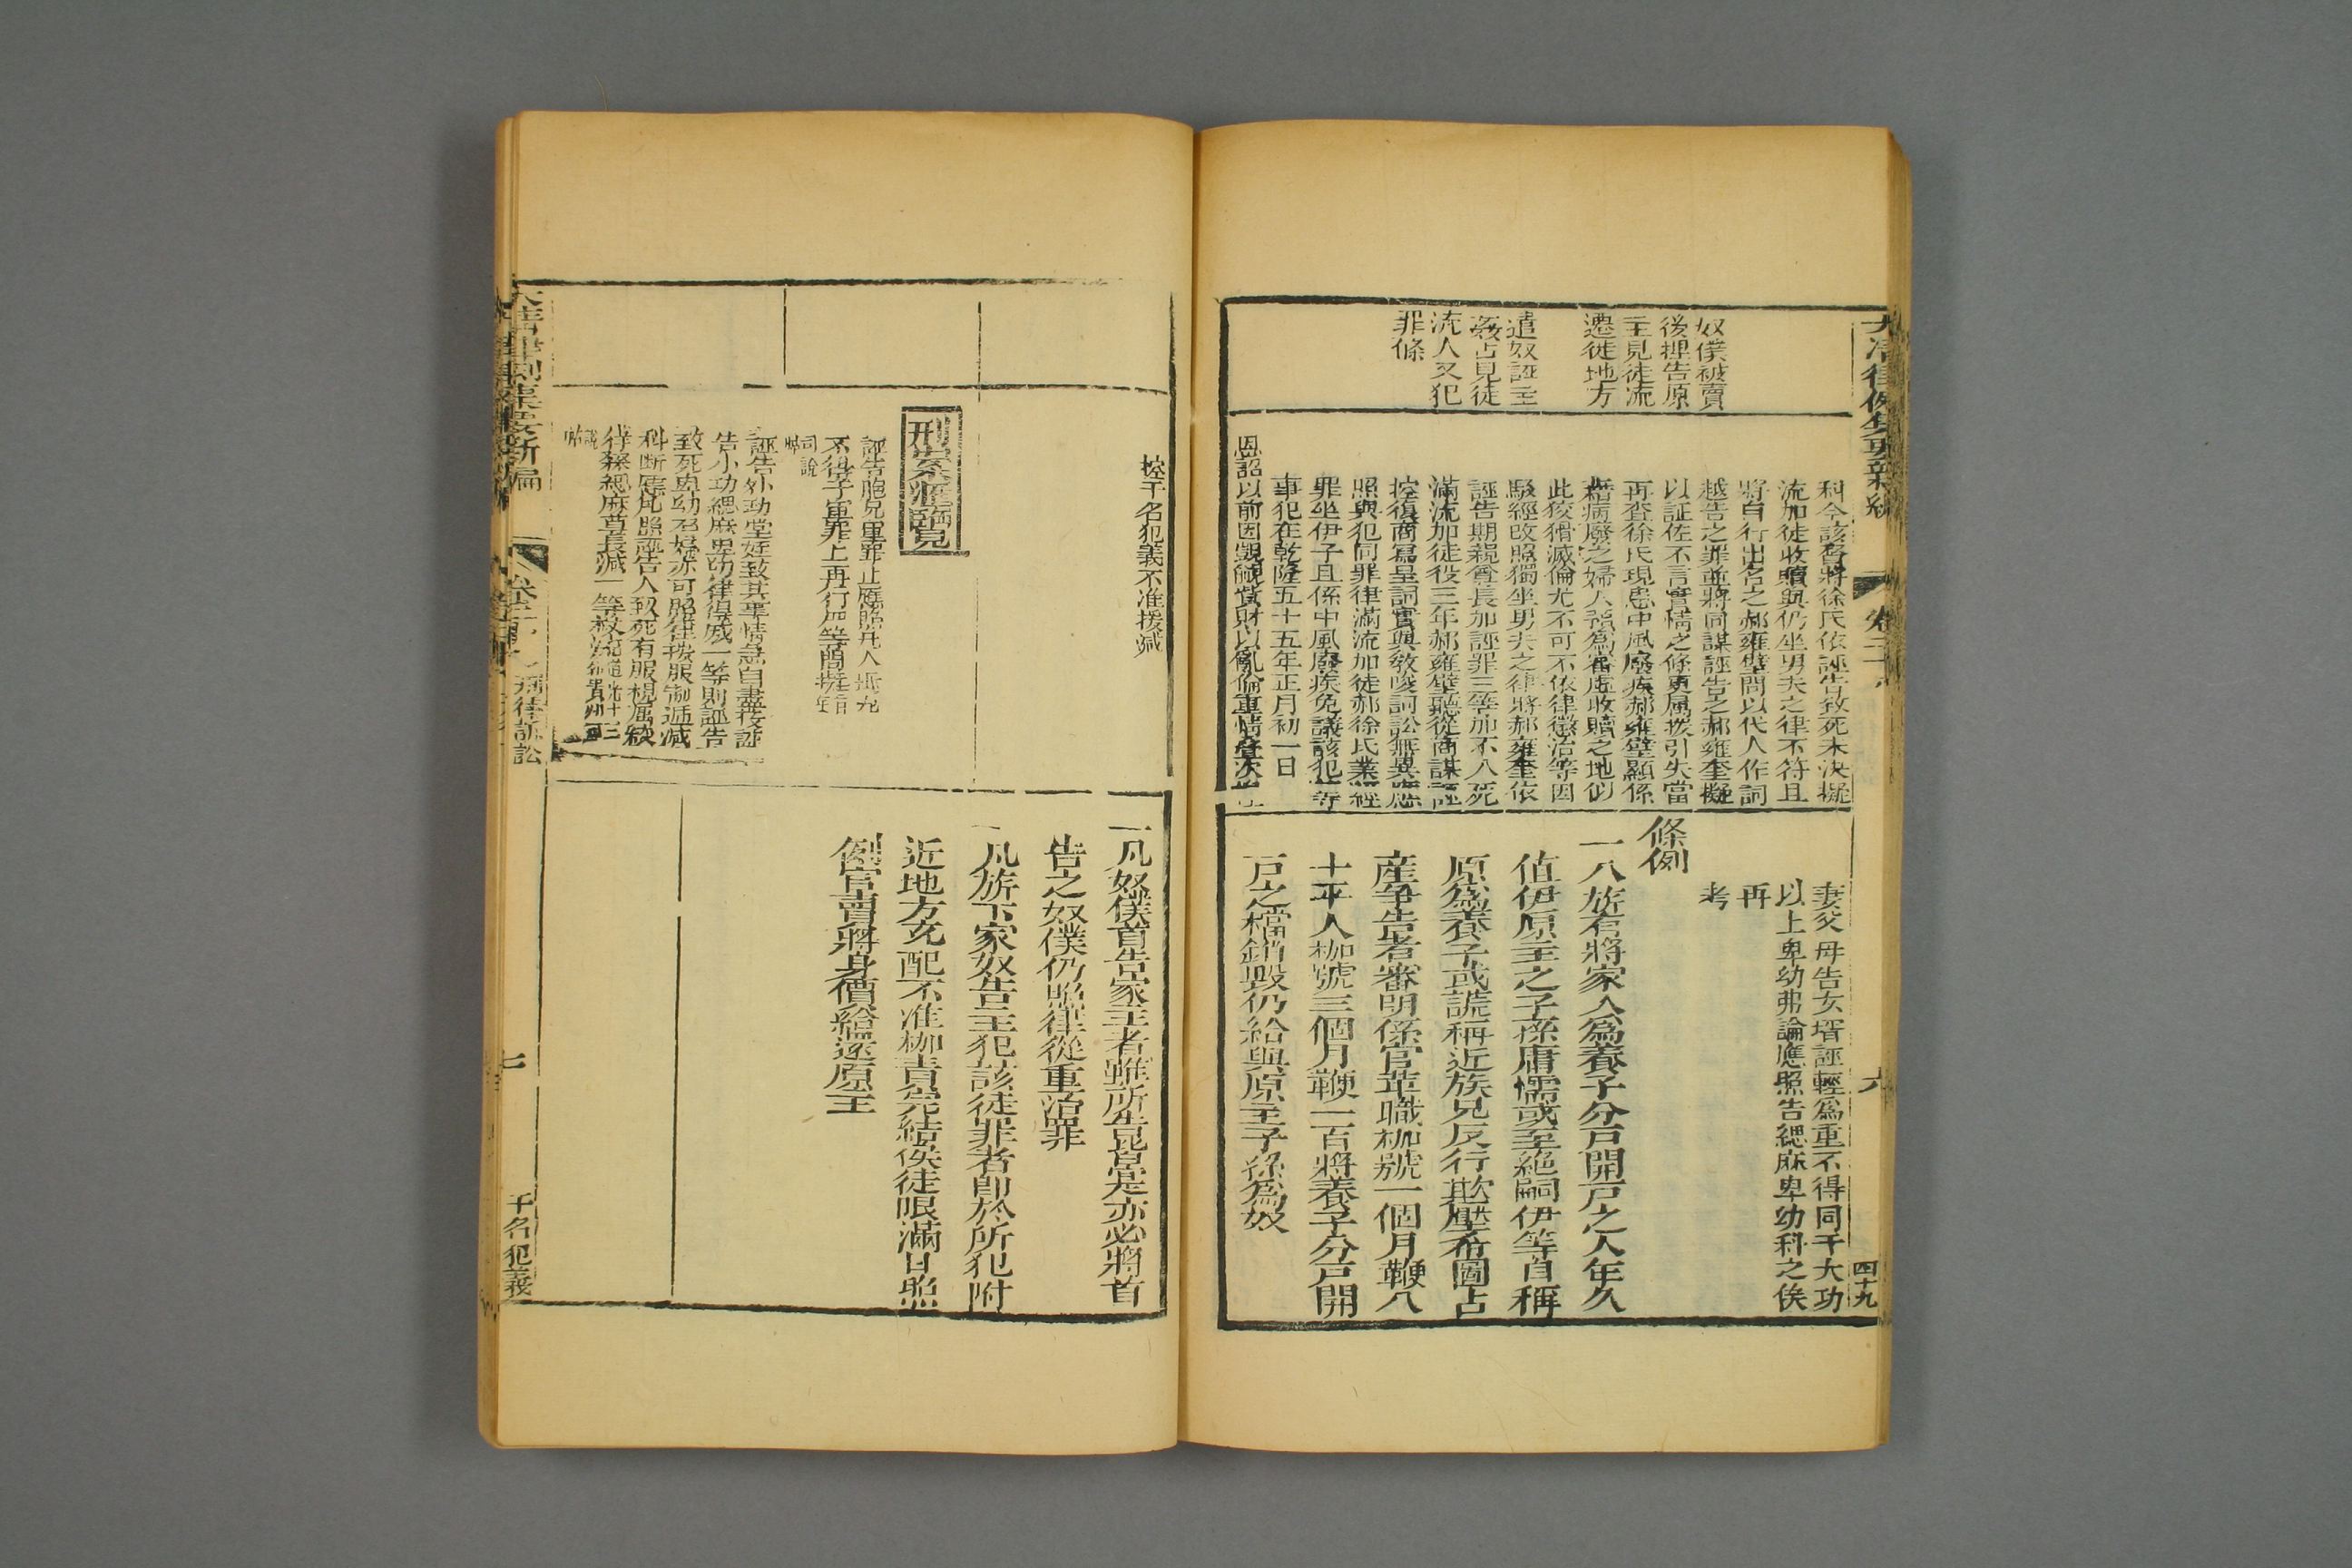 大清律例集要新編
卷二十八
六
四十九
奴僕被賣
後揑告原
主見徒流
遷徙地方
遣奴誣主
姦占見徒
流人又犯
罪條
科今該督將徐氏依誣告致死未決擬
流加徒收贖與仍坐男夫之律不符且
將自行出名之郝雍壁問以代人作詞
越告之罪並將同謀誣告之郝雍奎擬
以証佐不言實情之條更屬援引失當
再查徐氏現患中風廢疾郝雍壁顯係
藉病廢之婦人強為審虛收贖之地似
此狡猾滅倫尤不可不依律懲治等因
駁經改照獨坐男夫之律將郝雍奎依
誣告期親尊長加誣罪三等加不入死
滿流加徒役三年郝雍壁聽從商謀誣
控復商寫呈詞實與教唆詞訟無異應
照與犯同罪律滿流加徒郝徐氏業經
罪坐伊子且係中風廢疾免議該犯等
事犯在乾隆五十五年正月初一日
恩詔以前因覬覦貲財以亂倫重情疊次
妻父母告女壻誣輕為重不得同干大功
以上卑幼弗論應照告緦麻卑幼科之俟
再
考
條例
一八旂有將家人為養子分戶開戶之人年久
值伊原主之子孫庸懦或至絕嗣伊等自稱
原為養子或謊稱近族兄反行欺壓希圖占
產爭告者審明係官革職枷號一個月鞭八
十平人枷號三個月鞭一百將養子分戶開
戶之檔銷毀仍給與原主子孫為奴
控干名犯義不准援減
刑案滙覽
誣告胞兄重罪止應照凡人
不得于軍罪上再行加等
司說帖
誣告外功堂姪致其事情急自盡按誣
告小功緦麻卑幼律得減一等則誣告
致死卑幼名婦亦可照律按服制遞減
科斷應比照誣告人致死有服親屬絞
律緦麻尊長減一等擬流
說帖
一凡奴僕首告家主者雖所告皆實亦必將首
告之奴僕仍照律從重治罪
一凡旂下家奴告主犯該徒罪者即於所犯附
近地方充配不准枷責完結俟徒限滿日照
例官賣將身價給還原主
大清律例集要新編
刑律訴訟
七
干名犯義